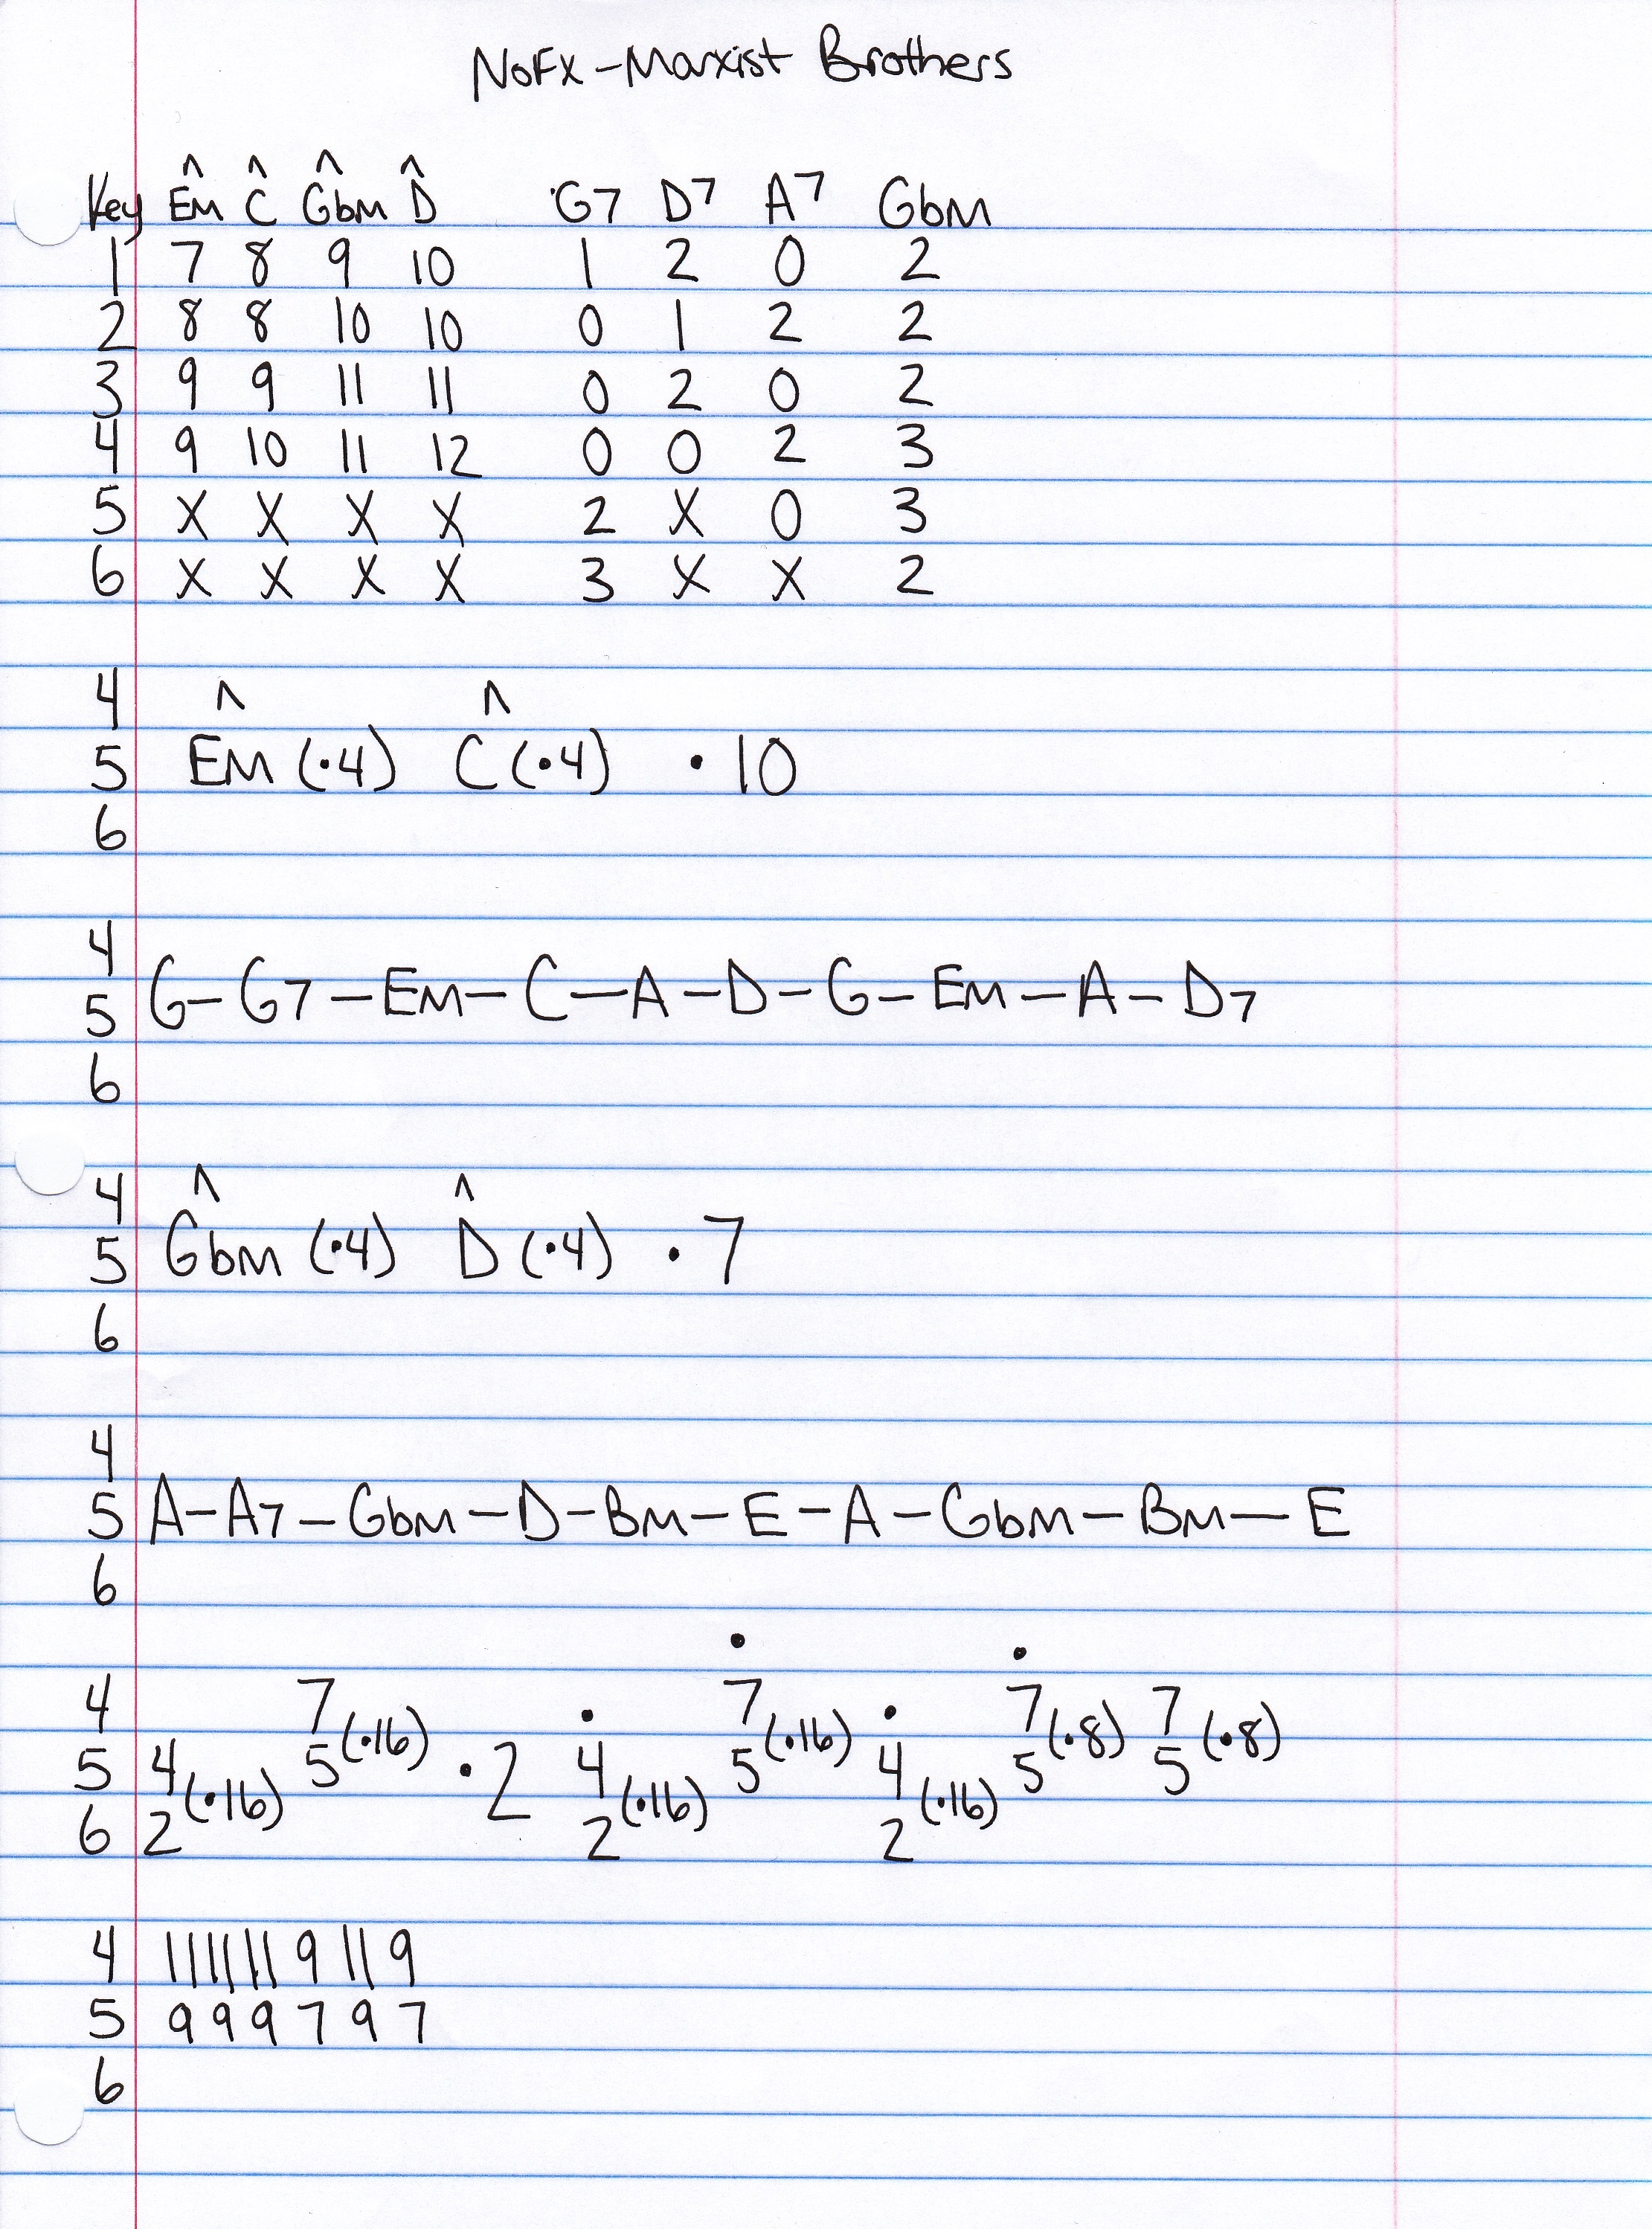 NOFX - Marxist Brothers
^ ^ ^ ^
Key Em C Gbm D G7 D7 A7 Gbm
1 7 8 9 10 1 2 0 2
2 8 8 10 10 0 1 2 2
3 9 9 11 11 0 2 0 2
4 9 10 11 12 0 0 2 3
5 X X X X 2 X 0 3
6 X X X X 3 X X 2
4 ^ ^
5 Em (·4) C (·4) · 10
6
4
5 G - G7 - Em - C - A - D - G - Em - A - D7
6
4 ^ ^
5 Gbm (·4) D (·4) · 7
6
4
5 A - A7 - Gbm - D - Bm - E - A - Gbm - Bm - E
6
· ·
4 7 · 7 · 7 7
5 4 5 (·16) · 2 4 5 (·16) 4 5 (·8) 5 (·8)
6 2 (·16) 2 (·16) 2 (·16)
4 11 11 11 9 11 9
5 9 9 9 7 9 7
6